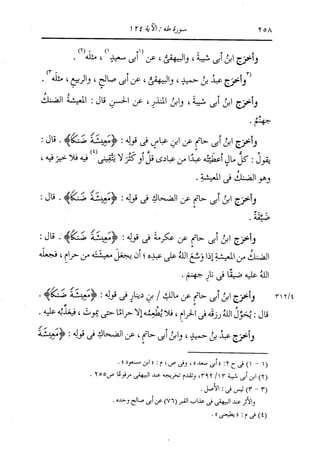 ٢٥٨ سورة طه : الآية ١٢٤
وأخرج ابنُ أبى شيبةَ ، والبيهقىُّ ، عن (١)أبى سعيدٍ(١) ، مثلَه(٢) .
(٣)وأخرَج عبدُ بنُ حميدٍ ، والبيهقىُّ ، عن أبى صالحٍ ، والربيعِ ، مثلَه(٣) .
وأخرَج ابنُ أبى شيبةَ ، وابنُ المنذرِ ، عن الحسنِ قال : المعيشةُ الضنكُ
جهنَّمُ .
وأخرَج ابنُ أبى حاتمٍ عن ابنِ عباسٍ فى قولِه : ﴿مَعِيشَةً ضَنكًا﴾ . قال :
يقولُ : كلُّ مالٍ أعطَيتُه عبدًا من عبادى قلَّ أو كثُر لا يتَّقينى(٤) فيه فلا خيرَ فيه ،
وهو الضنكُ فى المعيشةِ .
وأخرَج ابنُ أبى حاتمٍ عن الضحاكِ فى قولِه : ﴿مَعِيشَةً ضَنكًا﴾ . قال :
ضيِّقةً .
وأخرَج ابنُ أبى حاتمٍ عن عكرمةَ فى قولِه : ﴿مَعِيشَةً ضَنكًا﴾ . قال :
الضنكُ من المعيشةِ إذا وسَّع اللهُ على عبدِه ؛ أن يجعَلَ معيشتَه من حرامٍ ، فجعَله
اللهُ عليه ضيقًا فى نارِ جهنمَ .
٣١٢/٤ وأخرَج ابنُ أبى حاتمٍ عن مالكِ / بنِ دينارٍ فى قولِه : ﴿مَعِيشَةً ضَنكًا﴾ .
قال : يُحوِّلُ اللهُ رزقَه فى الحرامِ ، فلا يُطعِمُه إلا حرامًا حتى يموتَ ، فيعذِّبَه عليه .
وأخرَج عبدُ بنُ حميدٍ ، وابنُ أبى حاتمٍ ، عن الضحاكِ فى قولِه : ﴿مَعِيشَةً
(١ - ١) فى ح ٢ : « أبى سعد » ، وفى ص ، م : « ابن مسعود » .
(٢) ابن أبى شيبة ١٣/ ٣٩٢، وتقدم تخريجه عند البيهقى مرفوعًا ص٢٥٥ .
(٣ - ٣) ليس فى : الأصل .
والأثر عند البيهقى فى عذاب القبر (٧٦) عن أبى صالح وحده .
(٤) فى م : « يطيعنى » .